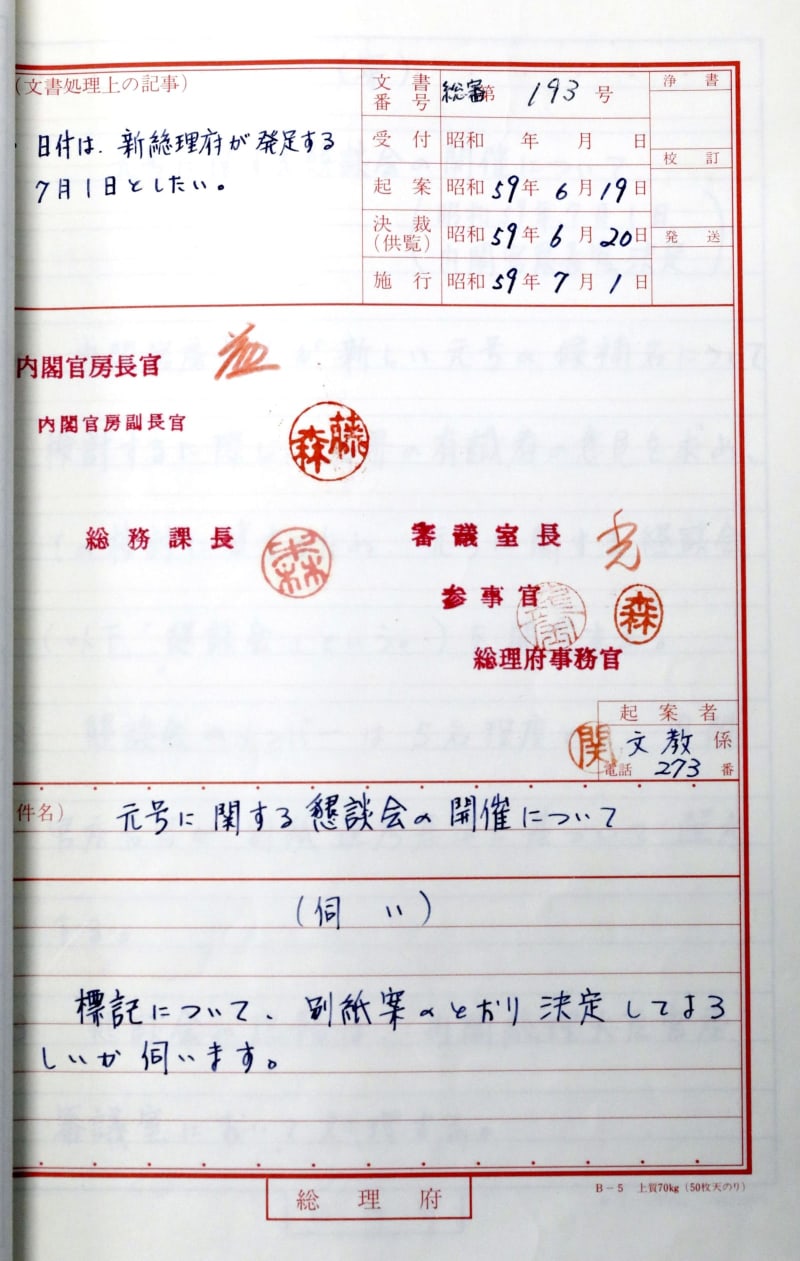 (文書処理上の記事)
・日付は、新総理府が発足する
7月1日としたい。
文書番号 総審第 193 号
受付 昭和 年 月 日
起案 昭和59年6月19日
決裁(供覧) 昭和59年6月20日
施行 昭和59年7月1日
浄書
校訂
発送
内閣官房長官
内閣官房副長官
藤森
総務課長
審議室長
参事官
森
総理府事務官
起案者
関 文教係
電話 273 番
件名) 元号に関する懇談会の開催について
(伺い)
標記について、別紙案のとおり決定してよろ
しいか伺います。
B-5 上質70kg (50枚天のり)
総理府